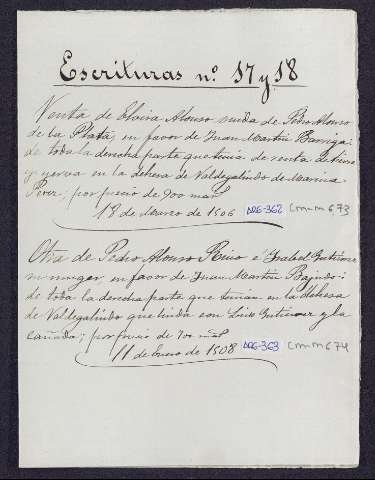 Escrituras nº 17 y 18
Venta de Elvira Alonso viuda de Pedro Alonso
de la Plata, en favor de Juan Martin Barriga:
de toda la derecha parte que tenia de renta de
y yerva en la dehesa de Valdegalindo de Marina
Perez; por precio de 900 mas
18 de Marzo de 1506 DDG-362 Cm-m 673
Otra de Pedro Alonso Rico é Ysabel Gutierrez
su muger, en favor de Juan Martin Bajudo:
de toda la derecha parte que tenian en la dehesa
de Valdegalindo que linda con Luis Gutierrez y la
cañada; por precio de 700
11 de Enero de 1508 DDG-363 Cm-m 674